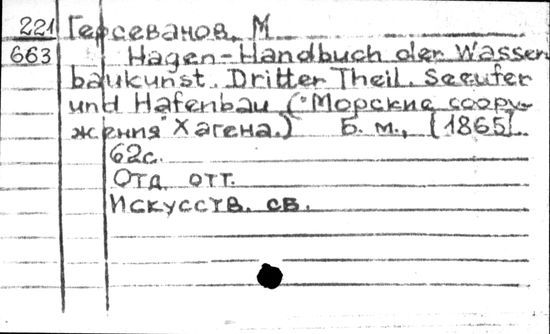 221 Герсеванов, М
663 Hagen-Handbuch der Wasser
baukunst. Dritter Theil. Seeufer
und Hafenbau ("Морские соору-
жения" Хагена.) Б. м., [1865].
62с.
Отд. отт.
Искусств. св.